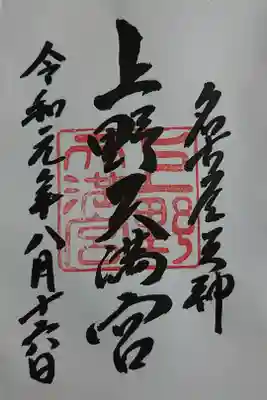 名古屋天神
上野天満宮
令和元年八月十六日
上野
天満宮